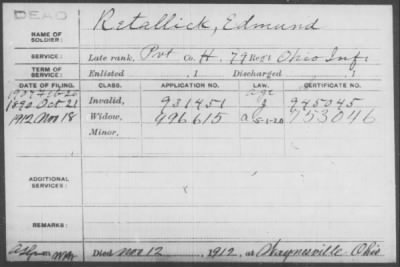 DEAD
NAME OF SOLDIER: Retallick, Edmund
SERVICE: Late rank, Pvt Co. H, 79 Reg't Ohio Inf.
TERM OF SERVICE: Enlisted , 1 Discharged , 1
DATE OF FILING. CLASS. APPLICATION NO. LAW. CERTIFICATE NO.
1890 Oct 21 Invalid, 931451 J 945045
1912 Nov 18 Widow, 996615 a 753046
Minor,
ADDITIONAL SERVICES:
REMARKS:
Died Nov 12, 1912, at Waynesville Ohio